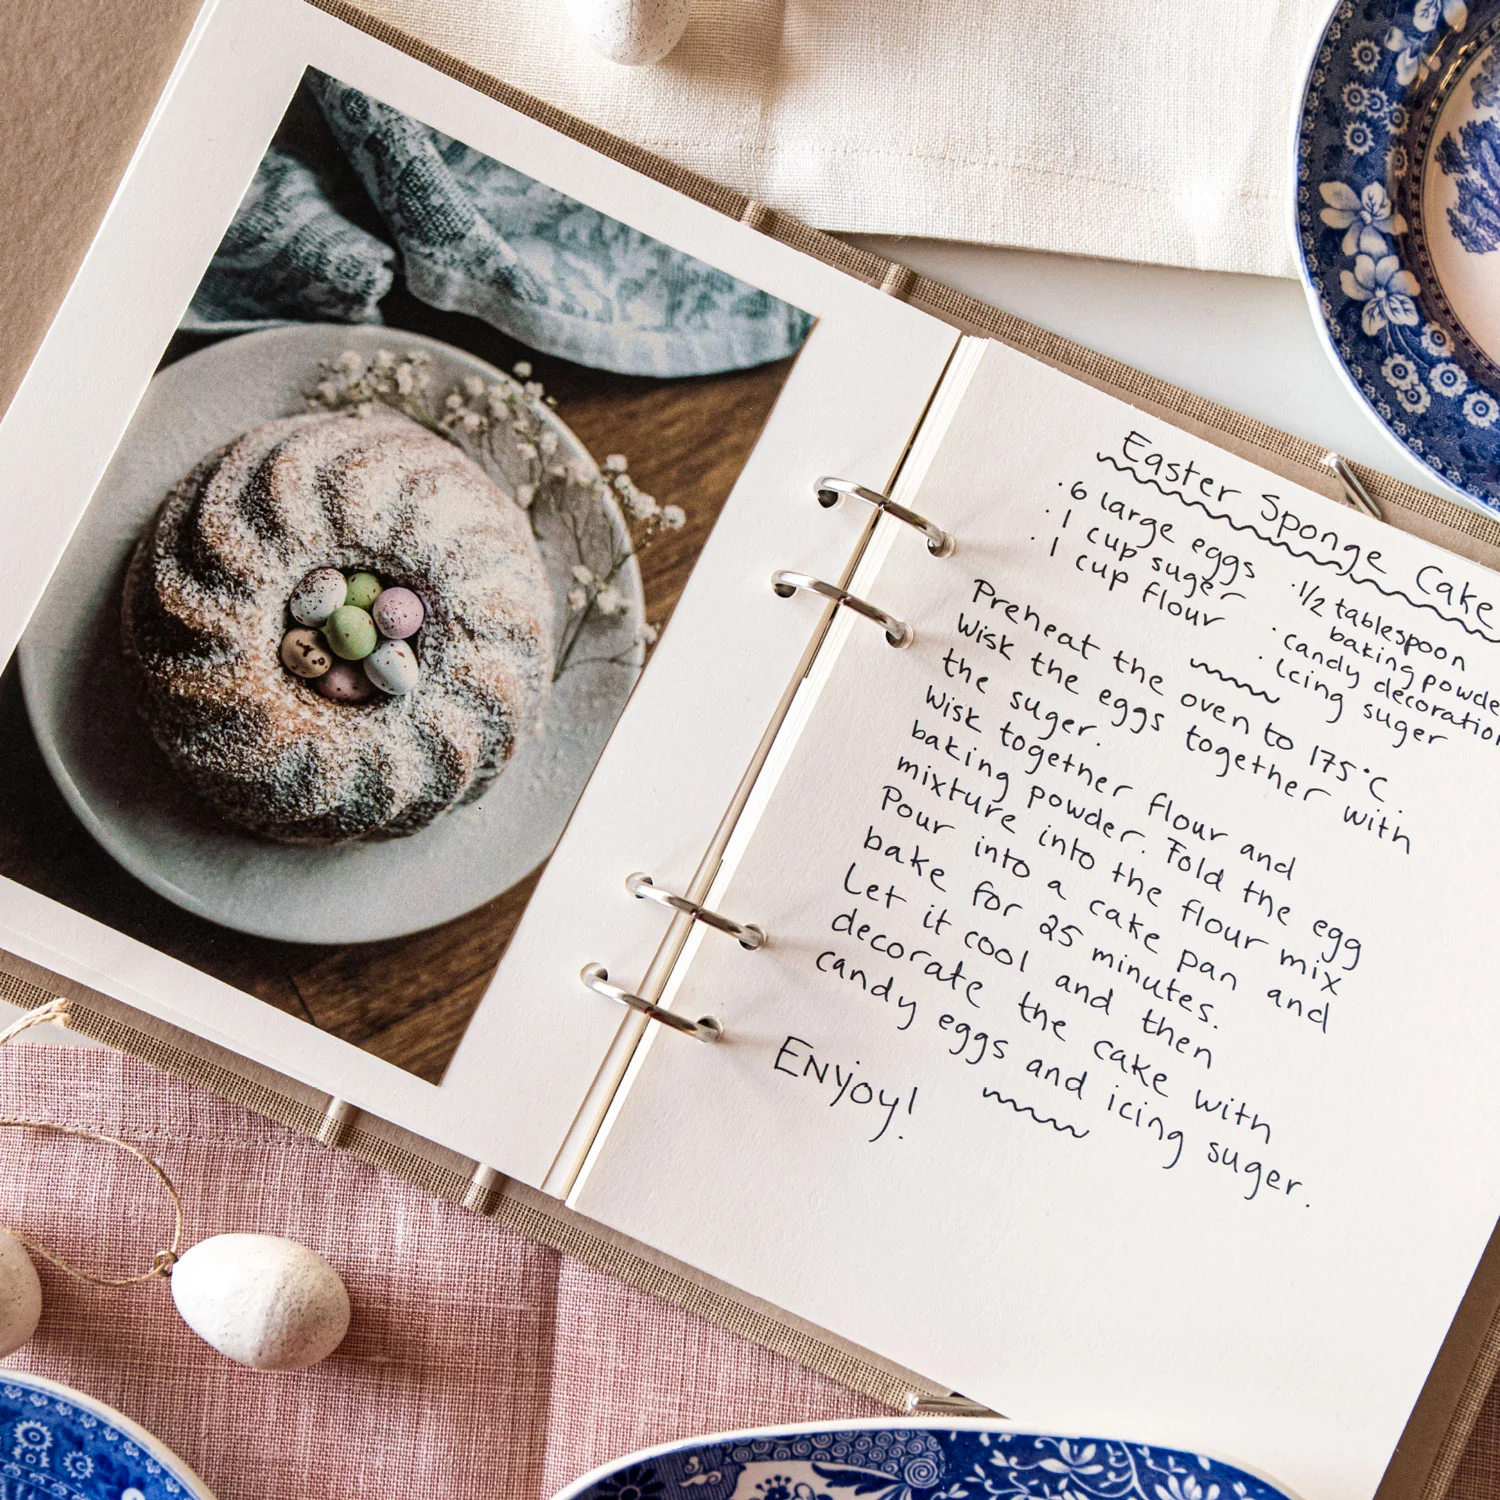 Easter Sponge Cake
·6 large eggs
·1 cup suger
·1 cup flour
·1/2 tablespoon
baking powde
·candy decoration
·Icing suger
Preheat the oven to 175°C.
Wisk the eggs together with
the suger.
Wisk together flour and
baking powder. Fold the egg
mixture into the flour mix
Pour into a cake pan and
bake for 25 minutes.
Let it cool and then
decorate the cake with
candy eggs and icing suger.
ENjoy!